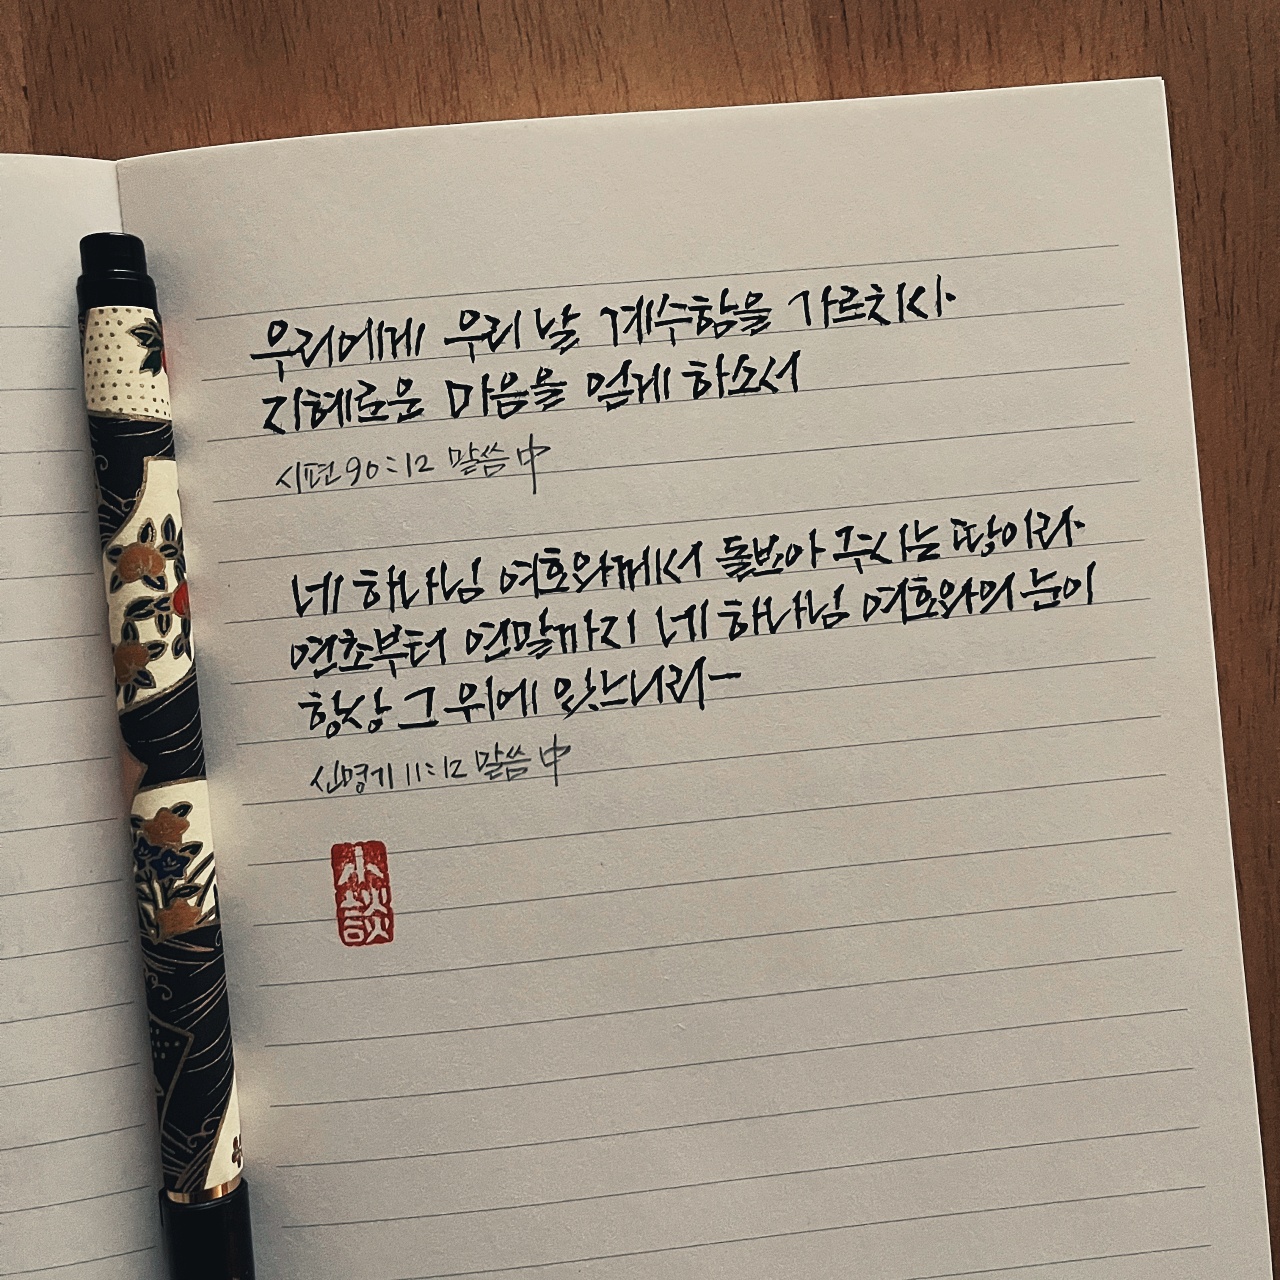 우리에게 우리 날 계수함을 가르치사
지혜로운 마음을 얻게 하소서
시편 90:12 말씀 中
네 하나님 여호와께서 돌보아 주시는 땅이라
연초부터 연말까지 네 하나님 여호와의 눈이
항상 그 위에 있느니라
신명기 11:12 말씀 中
小談